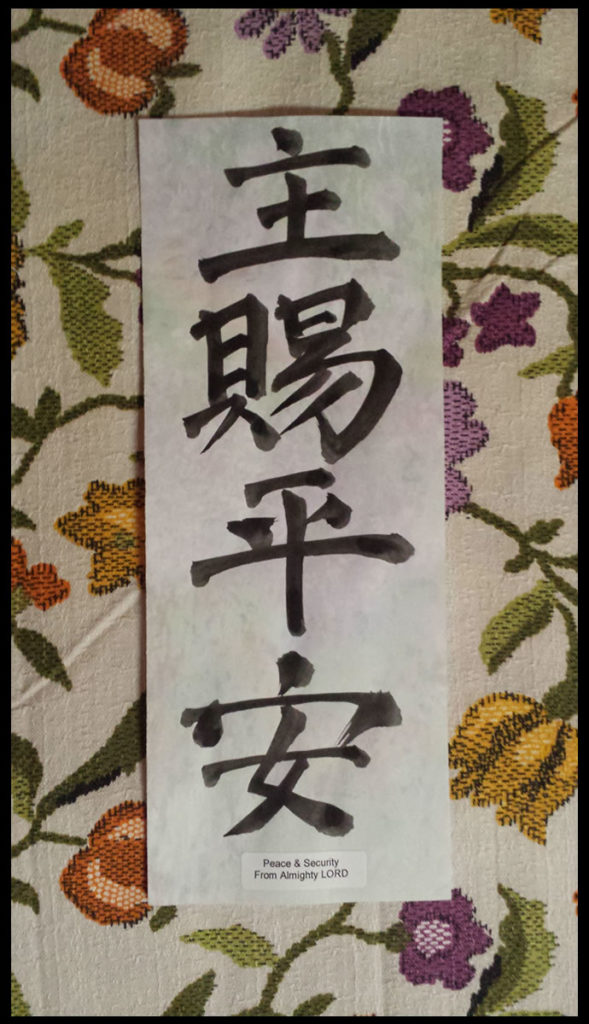 主賜平安
Peace & Security
From Almighty LORD